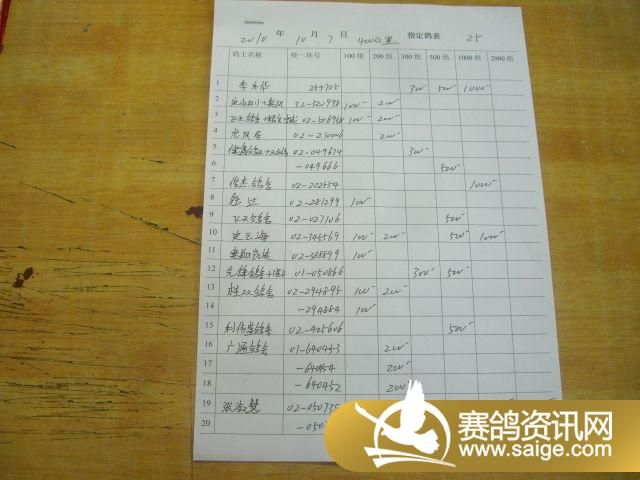 2010 年 10 月 7 日 400公里 指定鸽表 25
鸽主名称 统一环号 100 组 200 组 300 组 500 组 1000 组 2000 组
1 255705 300 500 1000
2 32-520998 100 200
3 100 200
4 龙凤居 02-210006 200
5 02-049674 300
6 -049666 500
7 俊杰鸽舍 02-222554 1000
8 02-281299 100
9 飞天鸽舍 02-027106 500
10 史云海 02-345569 100 200 500 1000
11 02-388899 100
12 01-050866 300 500
13 桂双鸽舍 02-294895 100 200
14 -294884 100
15 02-425606 500
16 广通鸽舍 01-640453 200
17 200
18 -640452 200
19 张淑慧 02-050735
20
赛鸽资讯网
www.saige.com